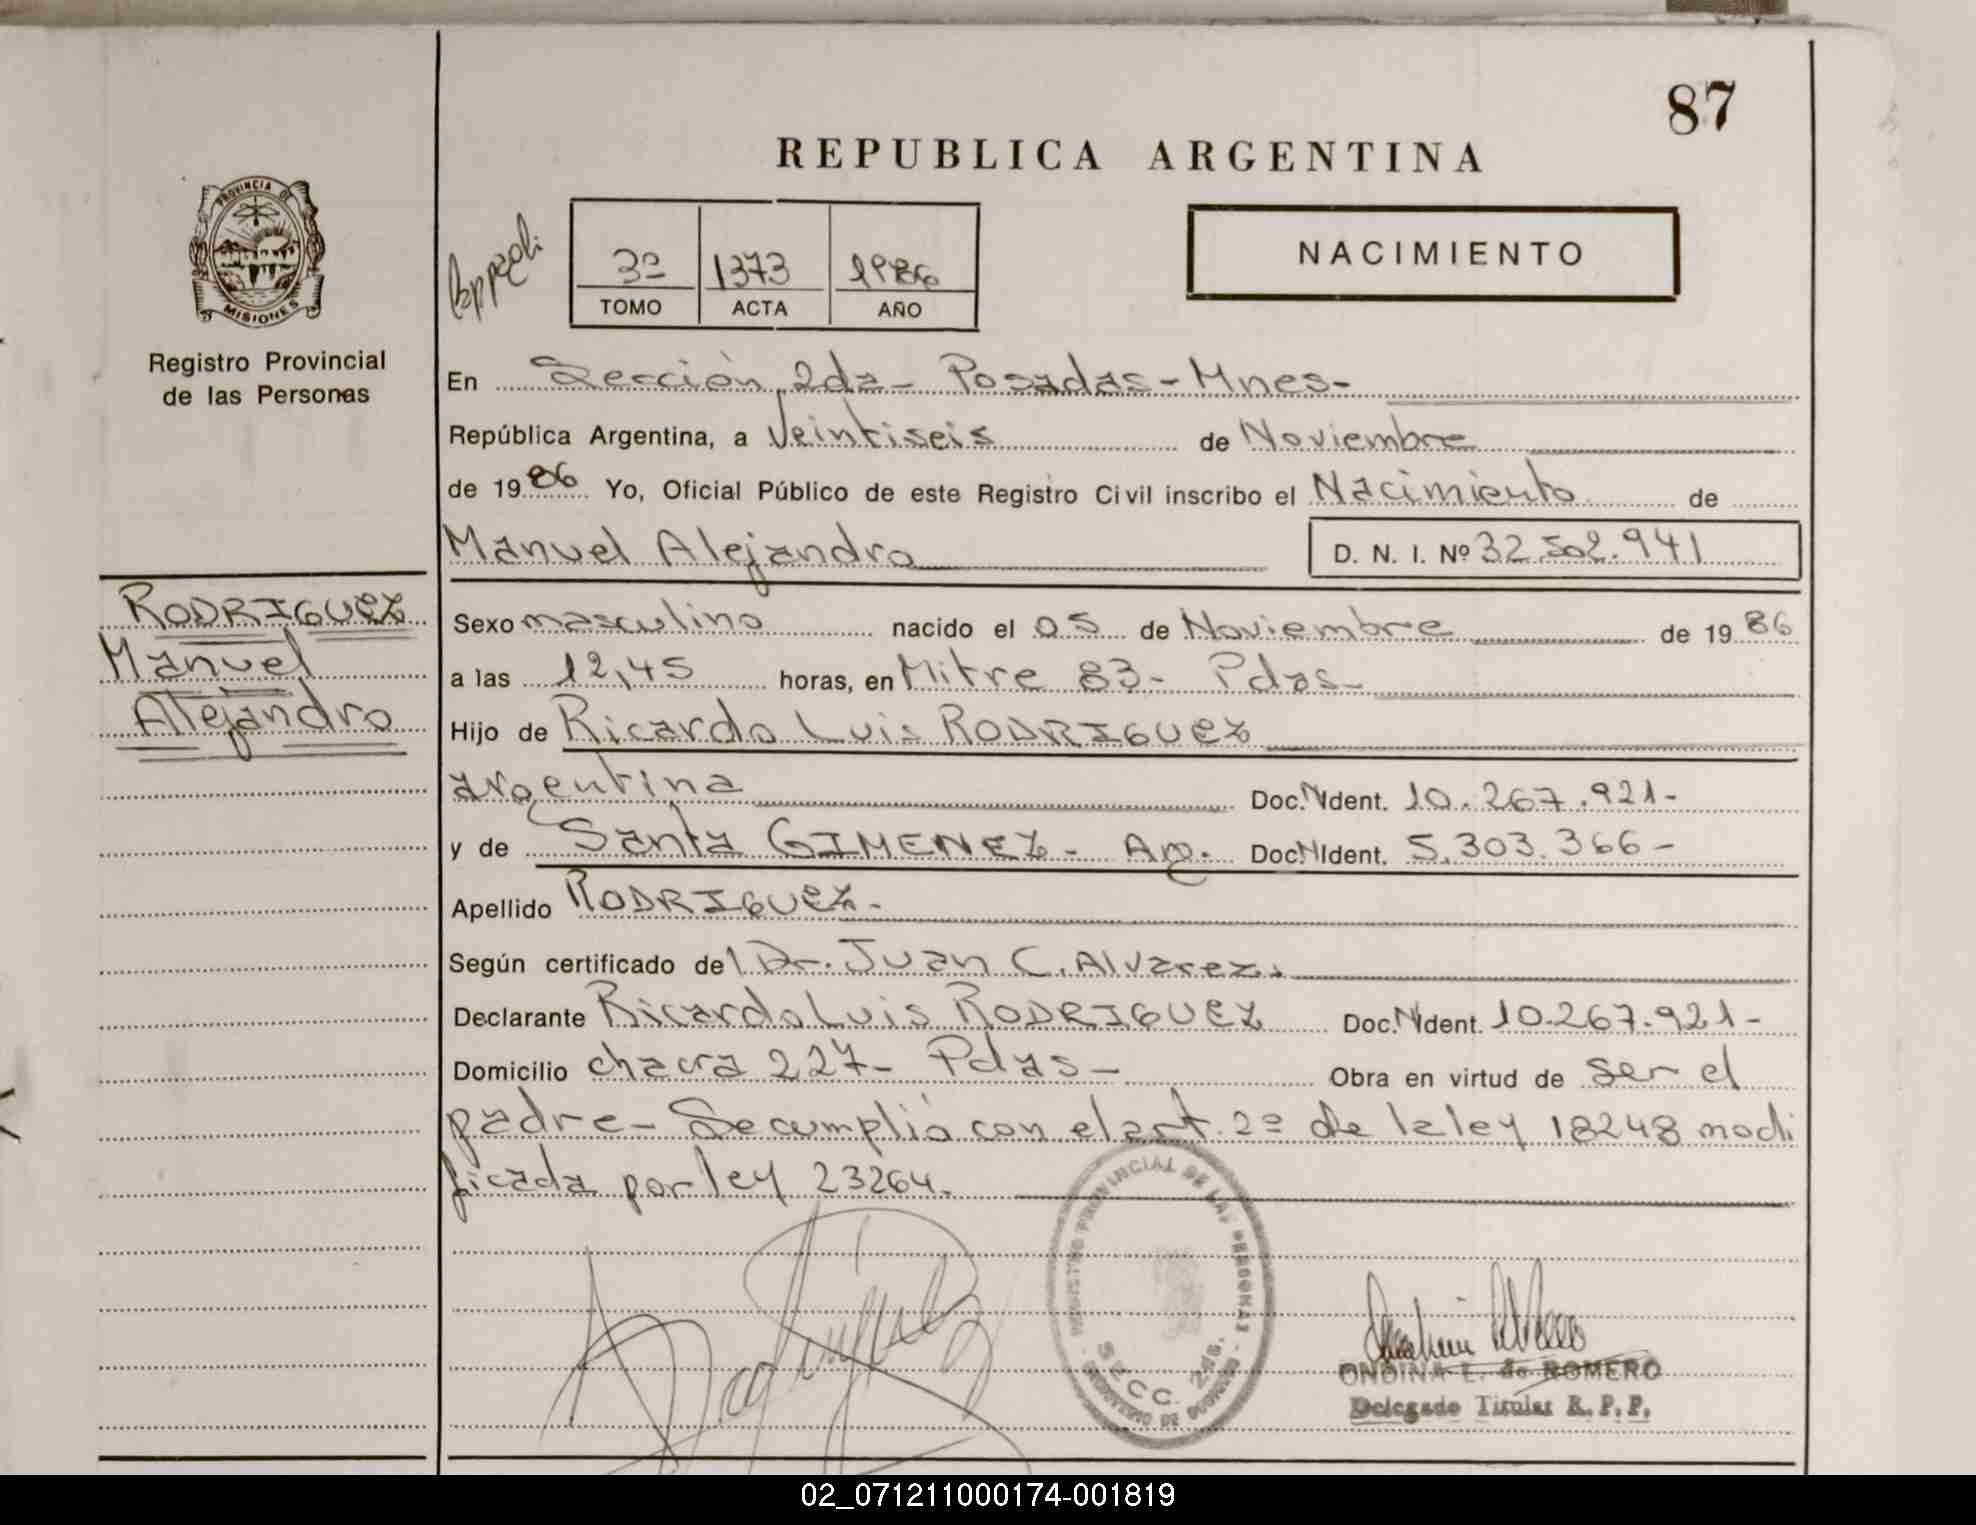 87
REPUBLICA ARGENTINA
PROVINCIA DE
MISIONES
Registro Provincial
de las Personas
3º 1373 1986
TOMO ACTA AÑO
NACIMIENTO
En Sección 2da - Posadas - Mnes-
República Argentina, a Veintiseis de Noviembre
de 1986 Yo, Oficial Público de este Registro Civil inscribo el Nacimiento de
Manuel Alejandro D. N. I. Nº 32.502.941
RODRIGUEZ
Manuel
Alejandro
Sexo masculino nacido el 05 de Noviembre de 1986
a las 12,45 horas, en Mitre 83- Pdas-
Hijo de Ricardo Luis RODRIGUEZ
argentina Doc. Ident. 10.267.921-
y de Santa GIMENEZ - Arg. Doc. Ident. 5.303.366-
Apellido RODRIGUEZ.-
Según certificado del Dr. Juan C. Alvarez.
Declarante Ricardo Luis RODRIGUEZ Doc. Ident. 10.267.921-
Domicilio chacra 227- Pdas- Obra en virtud de ser el
padre- Se cumplió con el art. 2º de la ley 18248 modi
ficada por ley 23264.
REGISTRO PROVINCIAL DE LAS PERSONAS
SECC. 2da.
MINISTERIO DE GOBIERNO
ONDINA E. de ROMERO
Delegado Titular R. P. P.
02_071211000174-001819